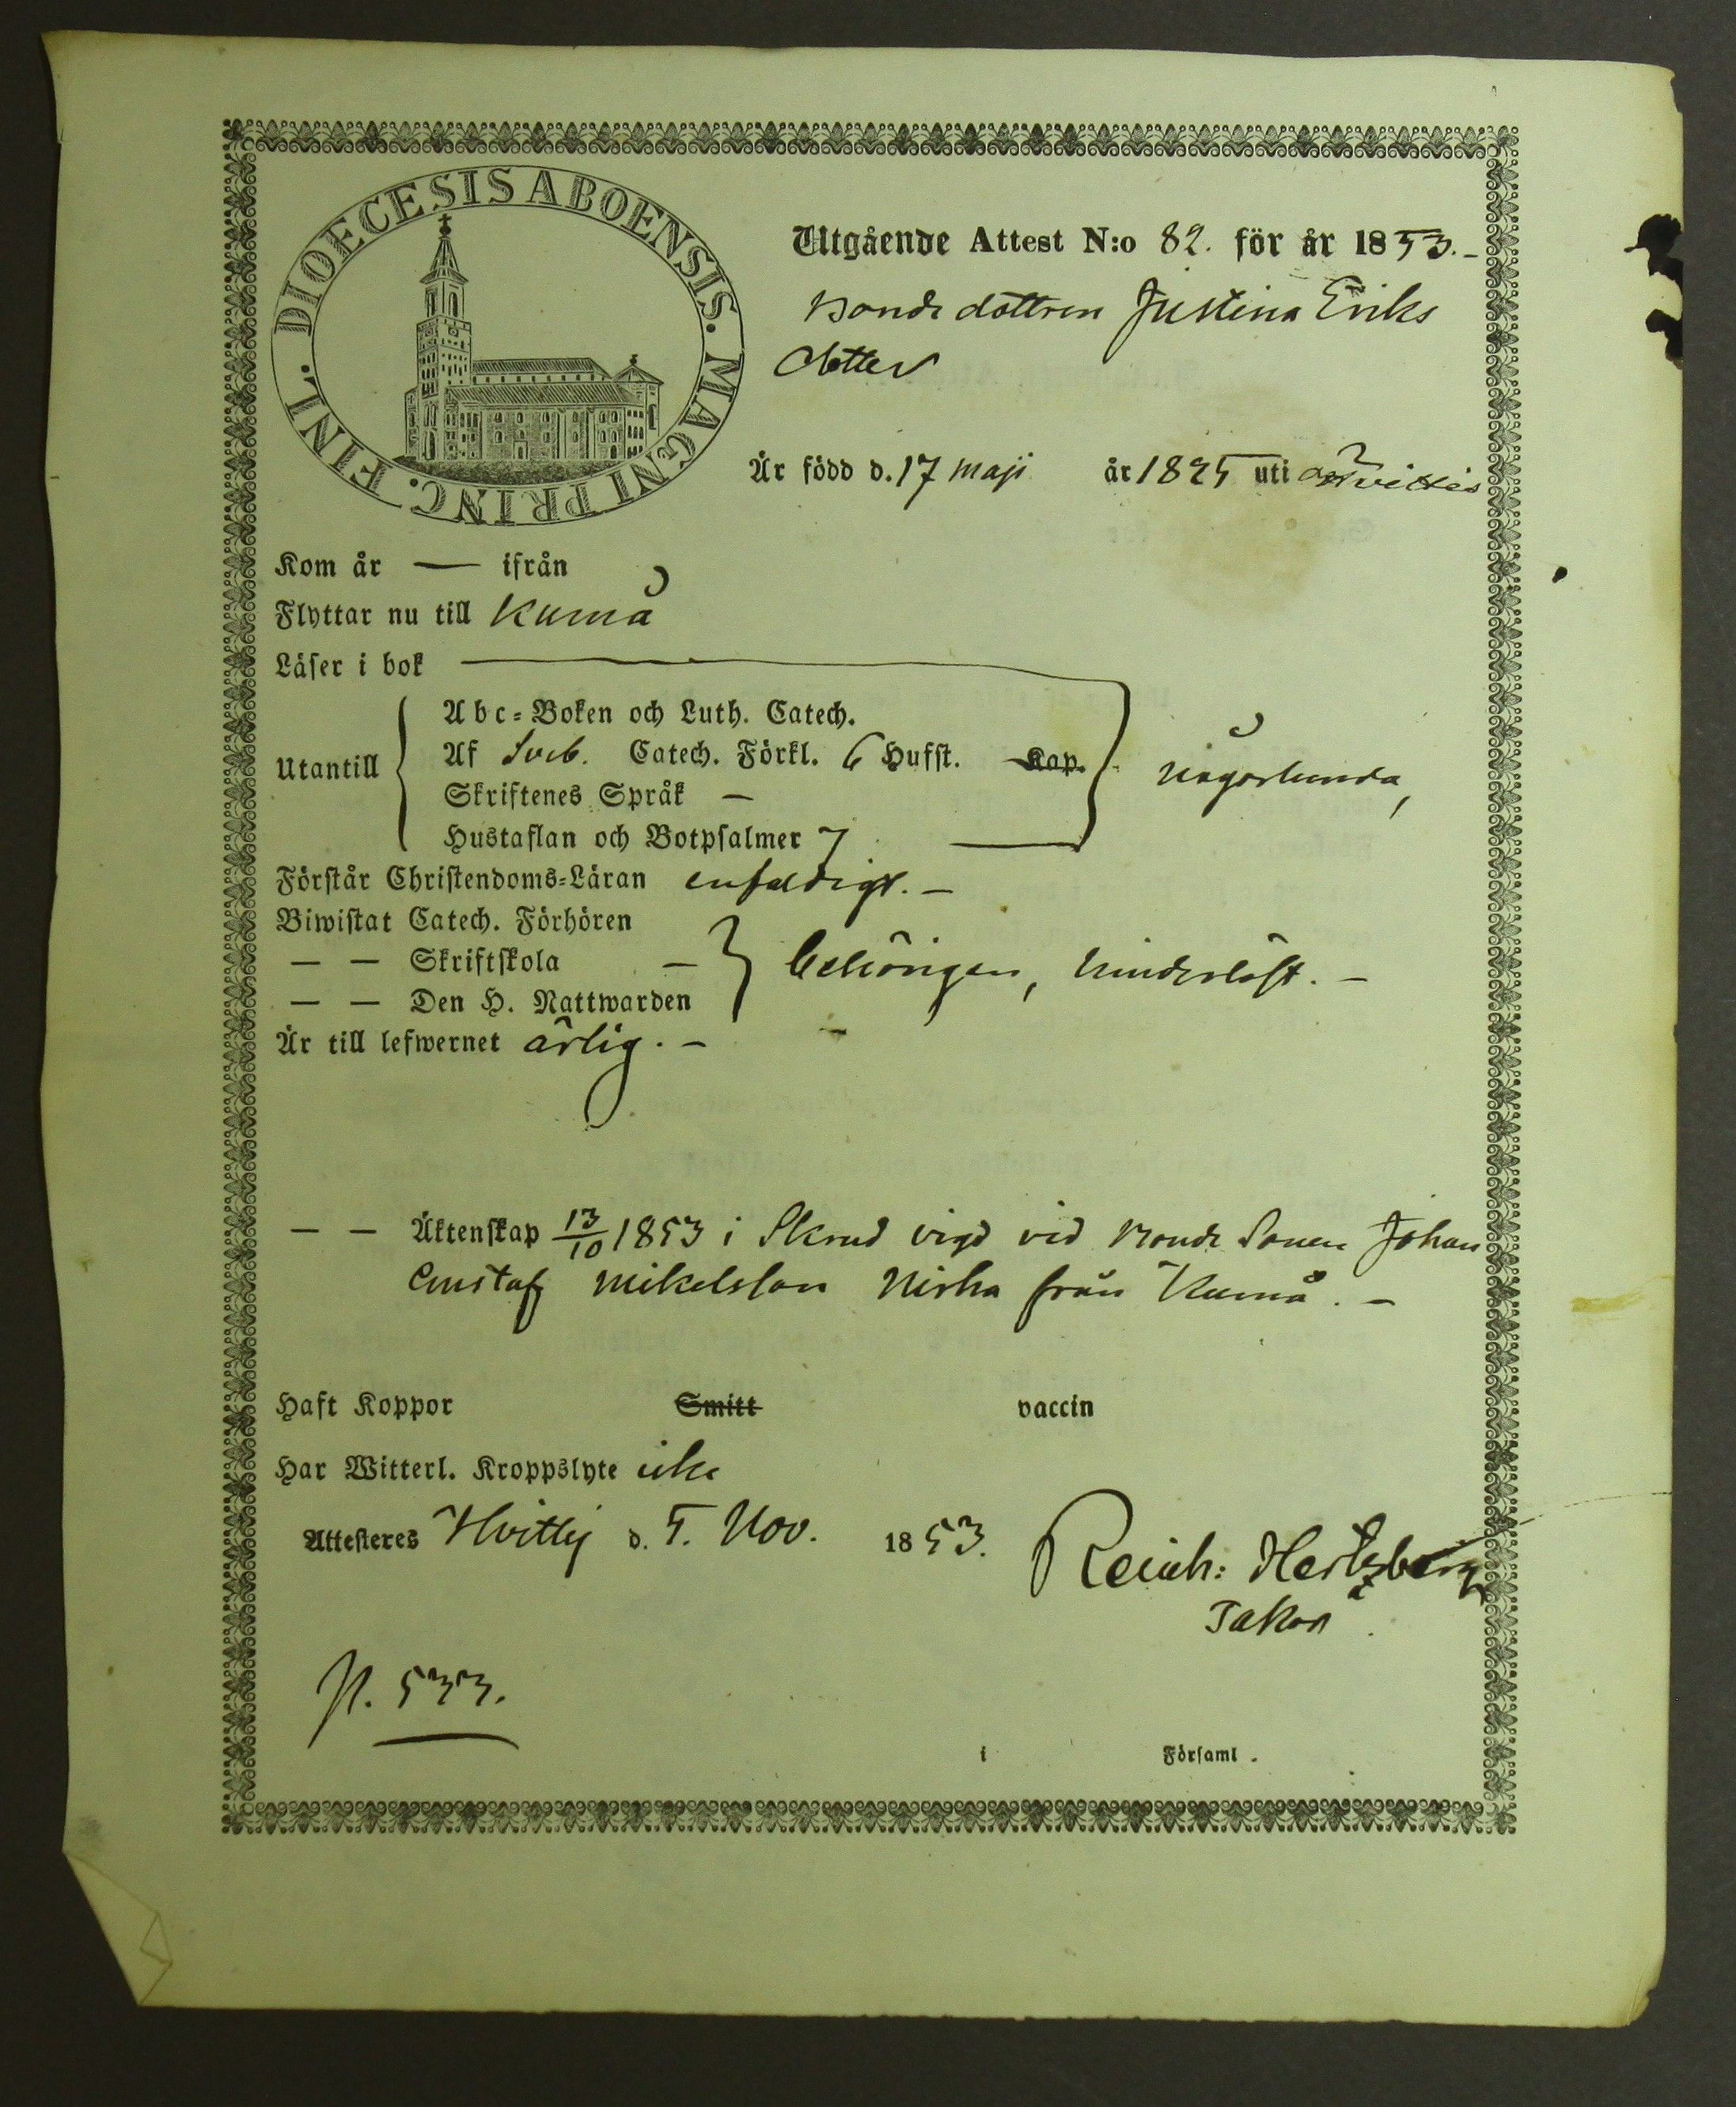 DIOECESIS ABOENSIS. MAGNI PRINC. FINL.
Utgående Attest N:o 82. för år 1853.-
Bondedottren Justina Eriks
dotter
Är född d. 17 Maji år 1825 uti Hvittis
Kom år — ifrån
Flyttar nu till Kumå
Läser i bok —
Utantill
Abc-Boken och Luth. Catech.
Af Sveb. Catech. Förkl. 6 Hufst. Kap.
Skriftenes Språk —
Hustaflan och Botpsalmer 7 —
någorlunda,
Förstår Christendoms-Läran enfaldigt. -
Biwistat Catech. Förhören
— — Skriftskola —
— — Den H. Nattwarden
behörigen, hinderlöst. -
Är till lefwernet ärlig. -
— — Äktenskap 13/10 1853 i Skrud vigd vid Bonde Sonen Johan
Gustaf Mikelsson från Kumå. -
Haft Koppor Smitt vaccin
Har Witterl. Kroppslyte icke
Attesteres Hvittis d. 5. Nov. 1853.
Reinh: Hertzberg
P. 533.
i Församl.